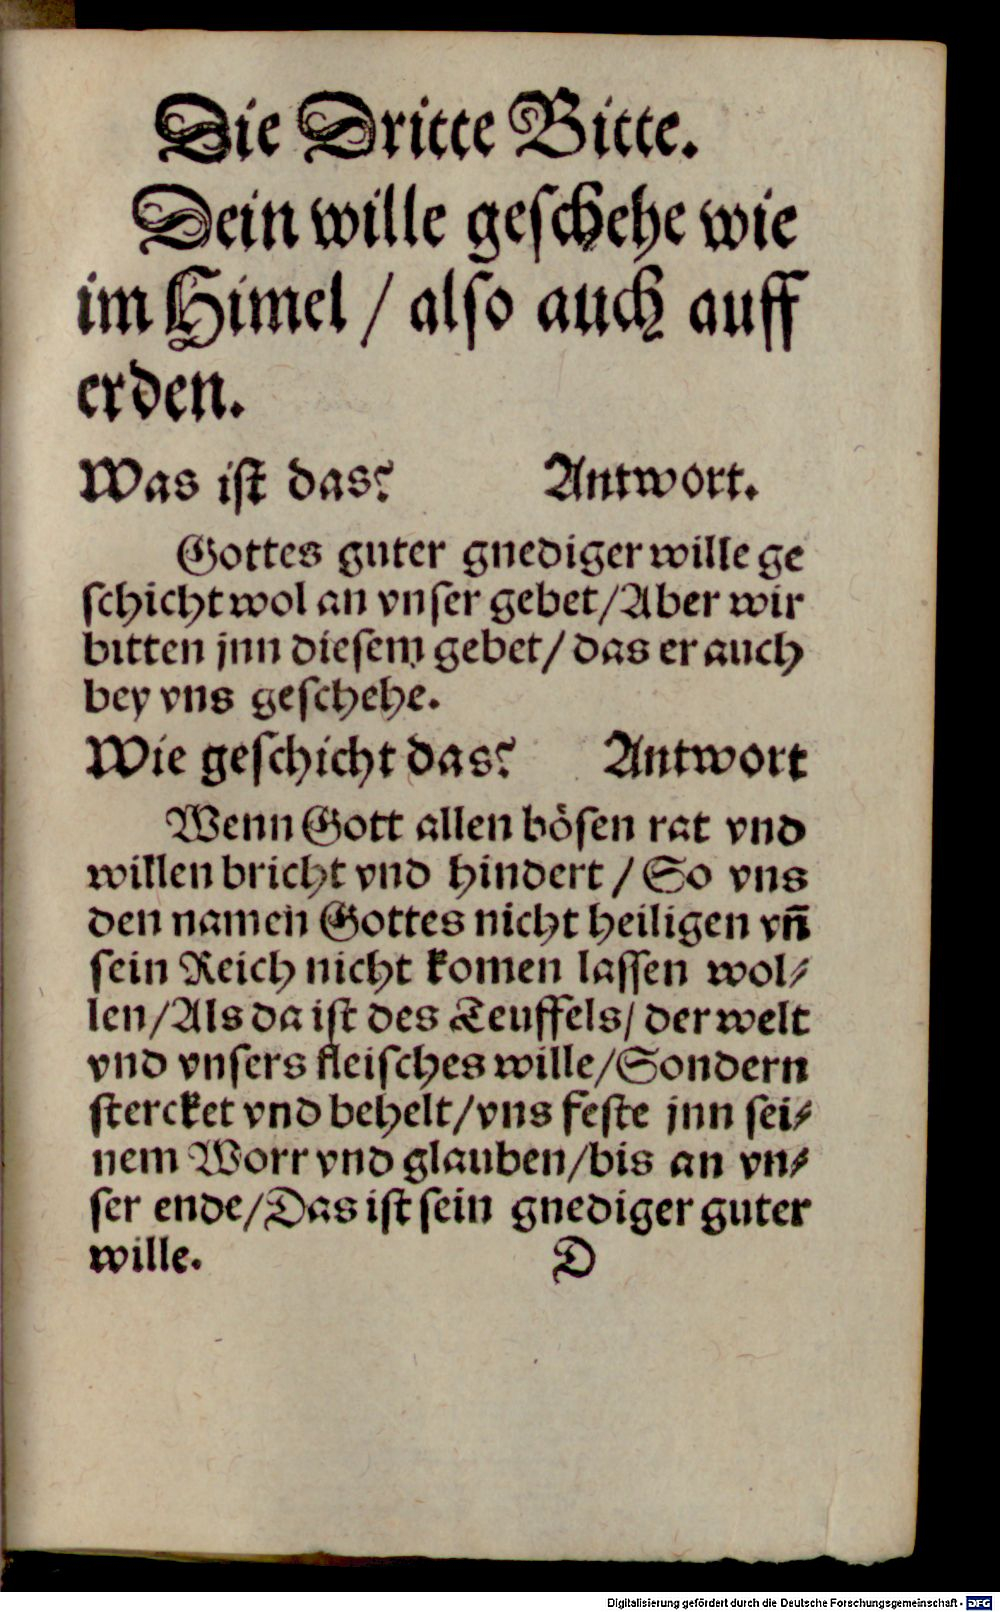 Die Dritte Bitte.
Dein wille geſchehe wie
im Himel / alſo auch auff
erden.
Was iſt das? Antwort.
Gottes guter gnediger wille ge
ſchicht wol an vnſer gebet/Aber wir
bitten jnn dieſem gebet/ das er auch
bey vns geſchehe.
Wie geſchicht das? Antwort
Wenn Gott allen böſen rat vnd
willen bricht vnd hindert / So vns
den namen Gottes nicht heiligen vn̄
ſein Reich nicht komen laſſen wol⸗
len/Als da iſt des Teuffels/ der welt
vnd vnſers fleiſches wille/Sondern
ſtercket vnd behelt/vns feſte jnn ſei⸗
nem Worr vnd glauben/bis an vn⸗
ſer ende/Das iſt ſein gnediger guter
wille. D
Digitalisierung gefördert durch die Deutsche Forschungsgemeinschaft - DFG